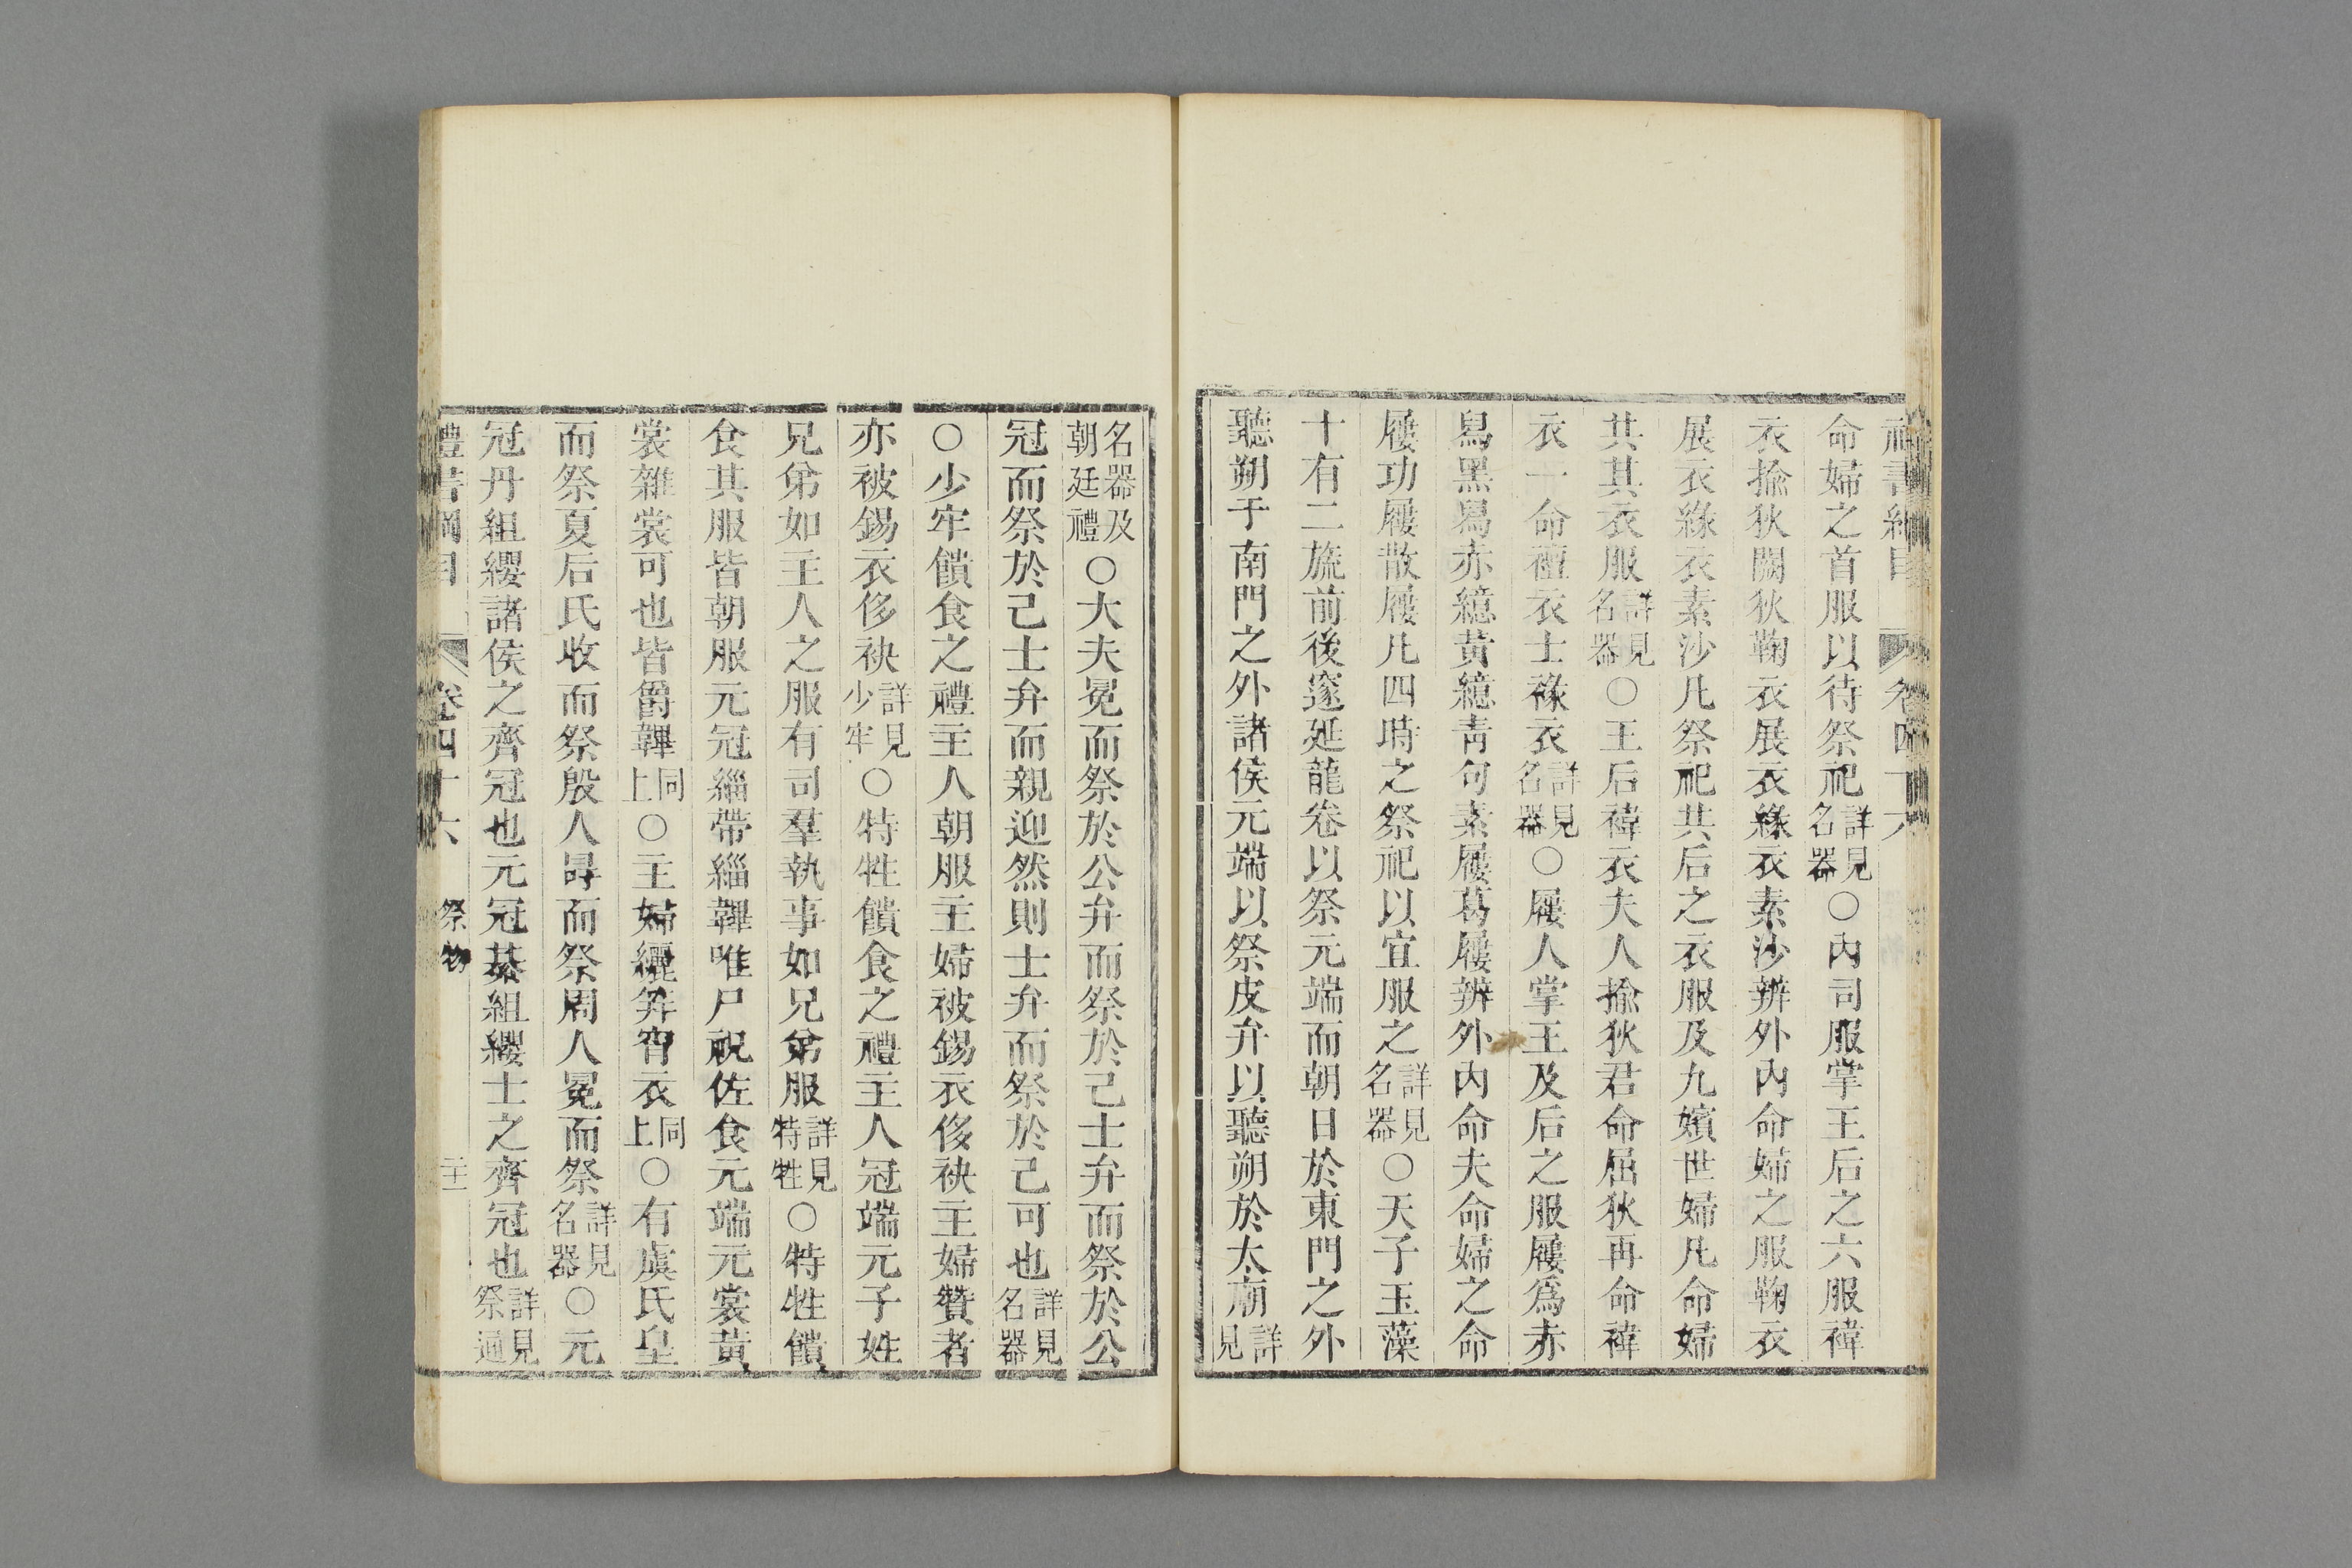 命婦之首服以待祭祀詳見名器○內司服掌王后之六服褘
衣揄狄闕狄鞠衣展衣緣衣素沙辨外內命婦之服鞠衣
展衣緣衣素沙凡祭祀共后之衣服及九嬪世婦凡命婦
共其衣服詳見名器○王后褘衣夫人揄狄君命屈狄再命褘
衣一命襢衣士褖衣詳見名器○屨人掌王及后之服屨爲赤
舄黑舄赤繶黃繶青句素屨葛屨辨外內命夫命婦之命
屨功屨散屨凡四時之祭祀以宜服之詳見名器○天子玉藻
十有二旒前後邃延龍卷以祭元端而朝日於東門之外
聽朔于南門之外諸侯元端以祭皮弁以聽朔於太廟詳見
名器及朝廷禮○大夫冕而祭於公弁而祭於己士弁而祭於公
冠而祭於己士弁而親迎然則士弁而祭於己可也詳見名器
○少牢饋食之禮主人朝服主婦被錫衣侈袂主婦贊者
亦被錫衣侈袂詳見少牢○特牲饋食之禮主人冠端元子姓
兄弟如主人之服有司羣執事如兄弟服詳見特牲○特牲饋
食其服皆朝服元冠緇帶緇韠唯尸祝佐食元端元裳黃
裳雜裳可也皆爵韠同上○主婦纚笄宵衣同上○有虞氏皇
而祭夏后氏收而祭殷人冔而祭周人冕而祭詳見名器○元
冠丹組纓諸侯之齊冠也元冠綦組纓士之齊冠也詳見祭通
禮書綱目 卷四十六 祭物